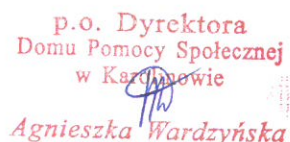 p.o. Dyrektora
Domu Pomocy Społecznej
w Karolinowie
Agnieszka Wardzyńska